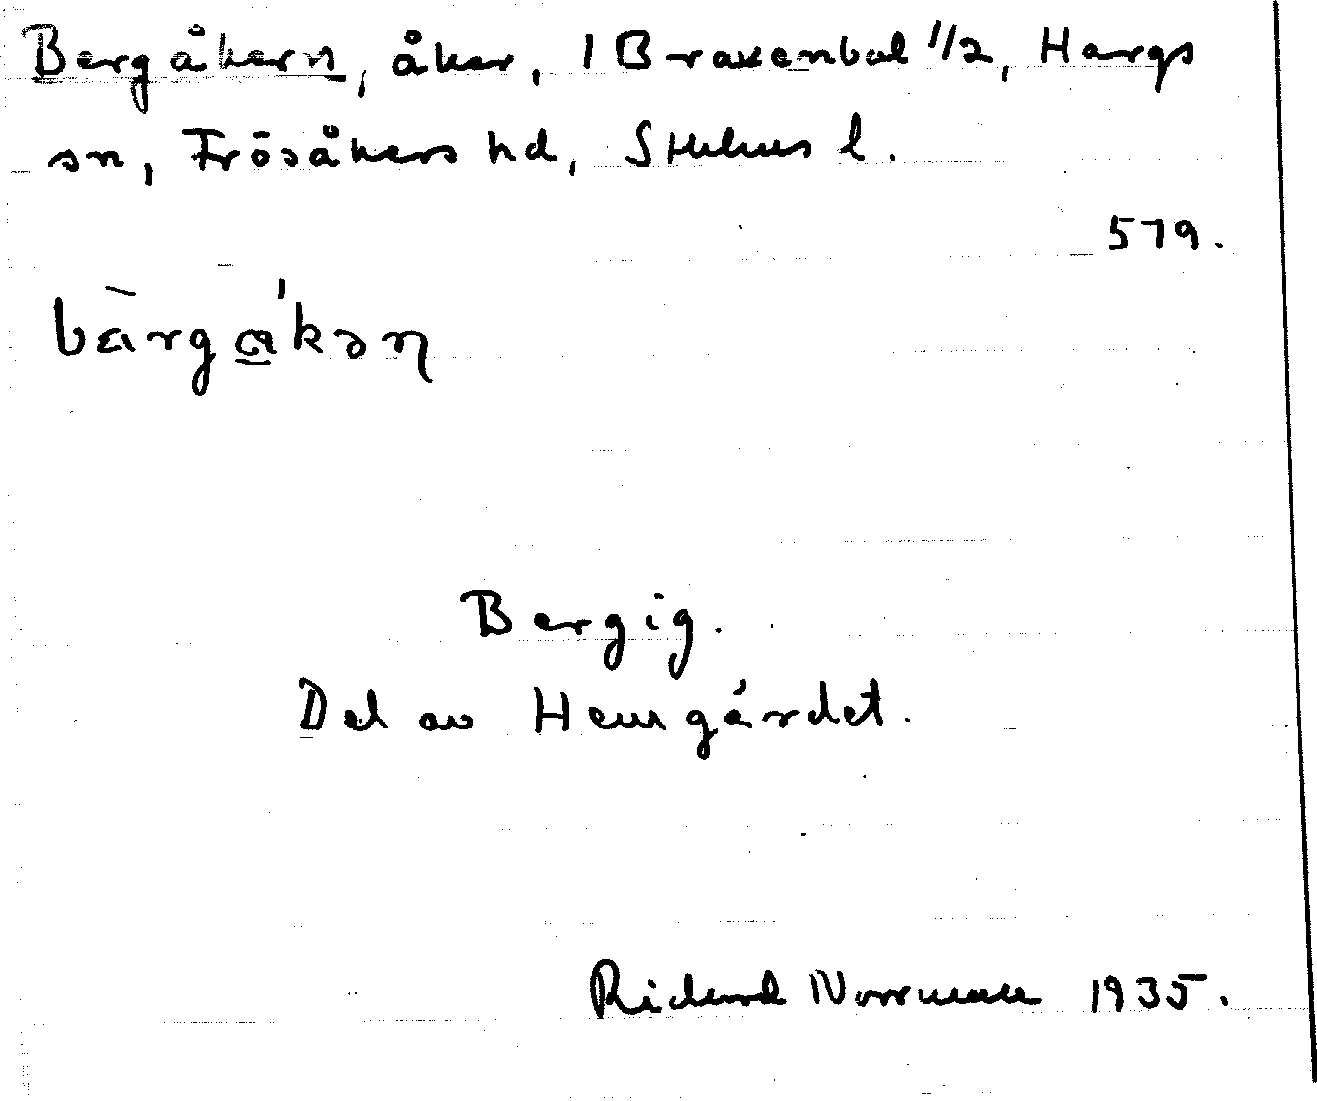 Bergåkern, åker, 1 Braxenbol 1/2, Hargs
sn, Frösåkers hd, Sthlms l.
579.
bàrgα̲̍kəɳ
Bergig.
Del av Hemgärdet.
Richard Norrman 1935.